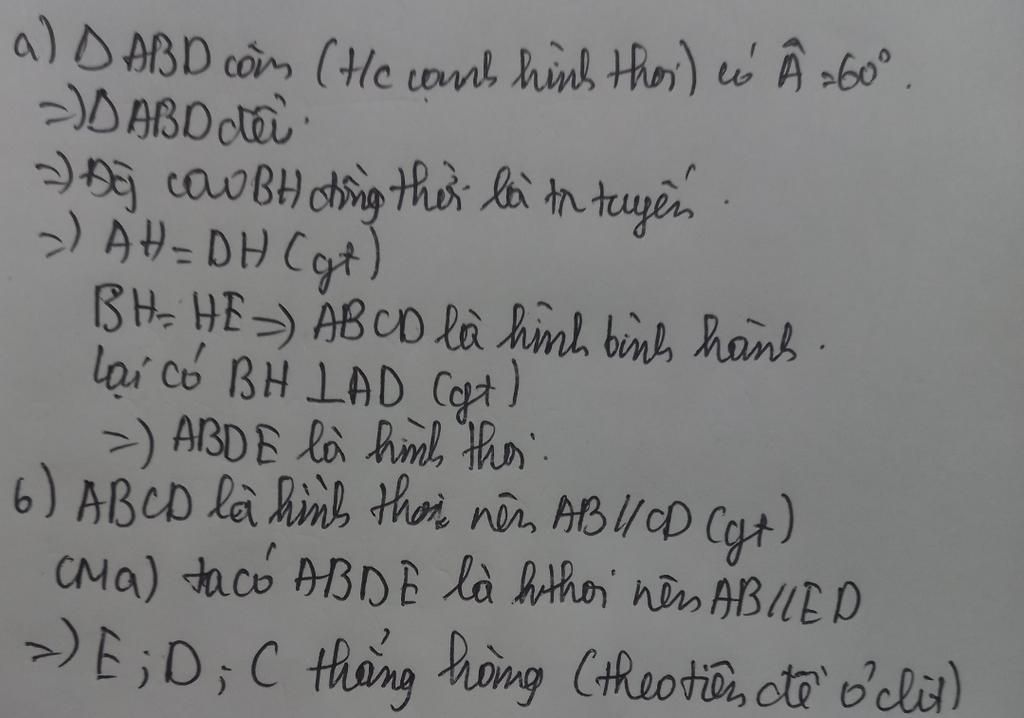 a) Δ ABD cân (t/c cạnh hình thoi) có Â = 60°.
=> Δ ABD đều.
=> Đg cao BH đồng thời là tr tuyến.
=> AH = DH (gt)
BH = HE => ABCD là hình bình hành.
Lại có BH ⊥ AD (gt)
=> ABDE là hình thoi.
b) ABCD là hình thoi nên AB // CD (gt)
(CMa) ta có ABDE là hthoi nên AB // ED
=> E; D; C thẳng hàng (theo tiên đề Ơclit)